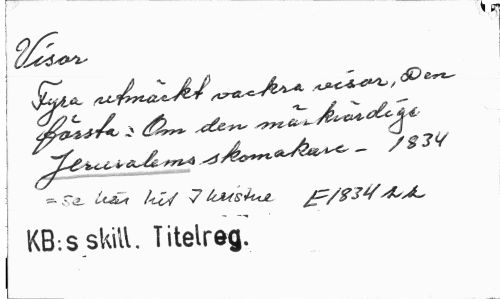 Visor
Fyra utmäckt vackra visor, Den
första: Om den märkvärdige
Jerusalems skomakare - 1834
= se här hit I kristne E1834 hh
KB:s skill. Titelreg.